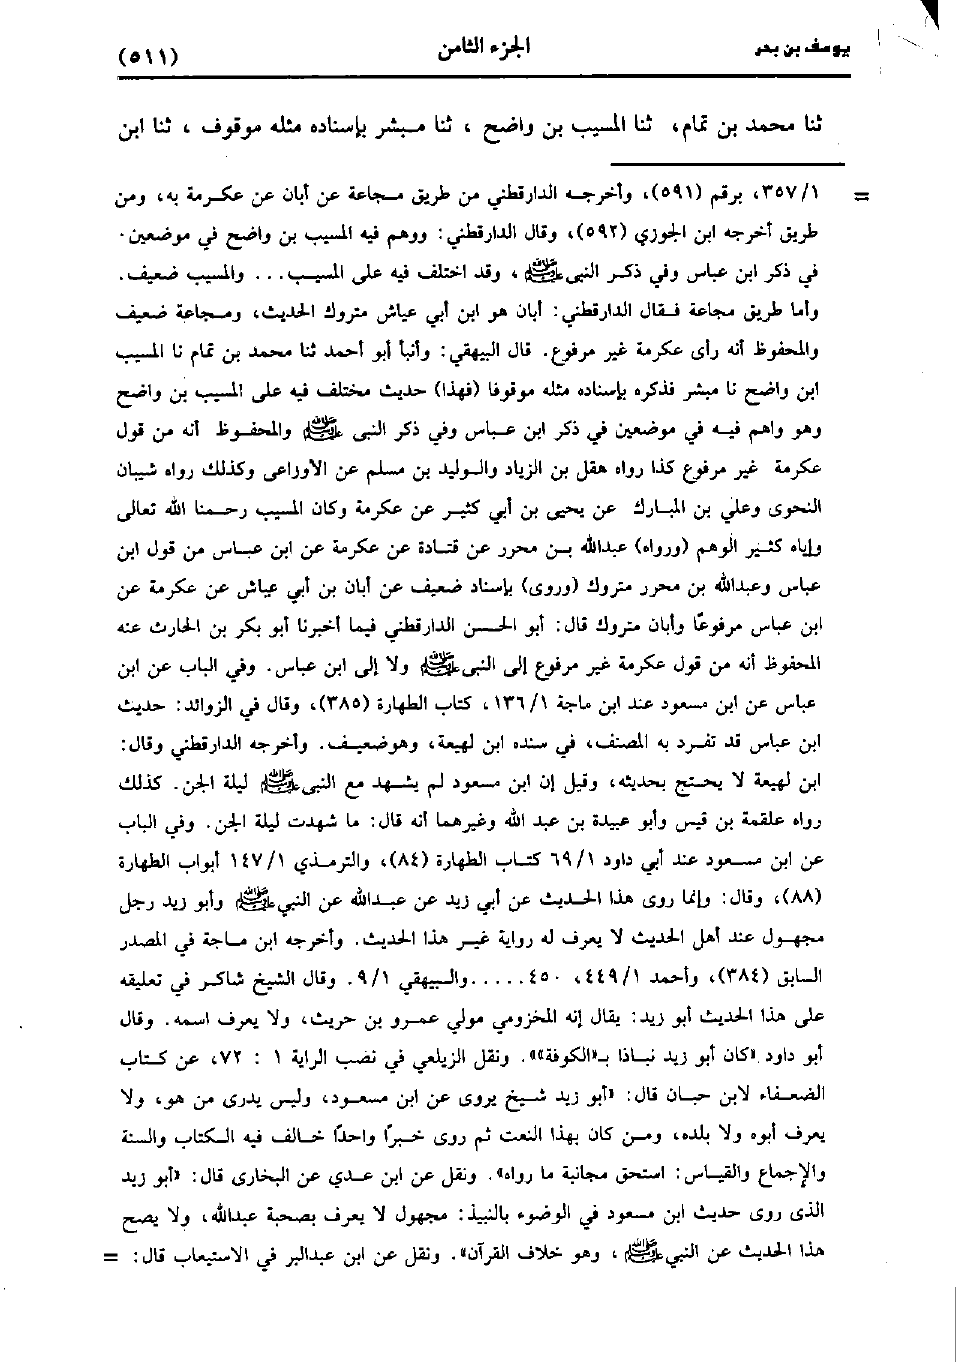 يوسف بن بحر
الجزء الثامن
(٥١١)
ثنا محمد بن تمام، ثنا المسيب بن واضح ، ثنا مبشر بإسناده مثله موقوف ، ثنا ابن
= ٣٥٧/١، برقم (٥٩١)، وأخرجه الدارقطني من طريق مجاعة عن أبان عن عكرمة به، ومن
طريق أخرجه ابن الجوزي (٥٩٢)، وقال الدارقطني: ووهم فيه المسيب بن واضح في موضعين.
في ذكر ابن عباس وفي ذكر النبي ﷺ ، وقد اختلف فيه على المسيب... والمسيب ضعيف.
وأما طريق مجاعة فقال الدارقطني: أبان هو ابن أبي عياش متروك الحديث، ومجاعة ضعيف
والمحفوظ أنه رأى عكرمة غير مرفوع. قال البيهقي: وأنبأ أبو أحمد ثنا محمد بن تمام نا المسيب
ابن واضح نا مبشر فذكره بإسناده مثله موقوفا (فهذا) حديث مختلف فيه على المسيب بن واضح
وهو واهم فيه في موضعين في ذكر ابن عباس وفي ذكر النبى ﷺ والمحفوظ أنه من قول
عكرمة غير مرفوع كذا رواه هقل بن الزياد والوليد بن مسلم عن الأوزاعى وكذلك رواه شيبان
النحوى وعلي بن المبارك عن يحيى بن أبي كثير عن عكرمة وكان المسيب رحمنا الله تعالى
وإياه كثير الوهم (ورواه) عبدالله بن محرر عن قتادة عن عكرمة عن ابن عباس من قول ابن
عباس وعبدالله بن محرر متروك (وروى) بإسناد ضعيف عن أبان بن أبي عياش عن عكرمة عن
ابن عباس مرفوعًا وأبان متروك قال: أبو الحسن الدارقطني فيما أخبرنا أبو بكر بن الحارث عنه
المحفوظ أنه من قول عكرمة غير مرفوع إلى النبى ﷺ ولا إلى ابن عباس. وفي الباب عن ابن
عباس عن ابن مسعود عند ابن ماجة ١٣٦/١، كتاب الطهارة (٣٨٥)، وقال في الزوائد: حديث
ابن عباس قد تفرد به المصنف، في سنده ابن لهيعة، وهوضعيف. وأخرجه الدارقطني وقال:
ابن لهيعة لا يحتج بحديثه، وقيل إن ابن مسعود لم يشهد مع النبى ﷺ ليلة الجن. كذلك
رواه علقمة بن قيس وأبو عبيدة بن عبد الله وغيرهما أنه قال: ما شهدت ليلة الجن. وفي الباب
عن ابن مسعود عند أبي داود ٦٩/١ كتاب الطهارة (٨٤)، والترمذي ١٤٧/١ أبواب الطهارة
(٨٨)، وقال: وإنما روى هذا الحديث عن أبي زيد عن عبدالله عن النبي ﷺ وأبو زيد رجل
مجهول عند أهل الحديث لا يعرف له رواية غير هذا الحديث. وأخرجه ابن ماجة في المصدر
السابق (٣٨٤)، وأحمد ٤٤٩/١، ٤٥٠.....والبيهقي ٩/١. وقال الشيخ شاكر في تعليقه
على هذا الحديث أبو زيد: يقال إنه المخزومي مولي عمرو بن حريث، ولا يعرف اسمه. وقال
أبو داود «كان أبو زيد نباذا بـ«الكوفة»». ونقل الزيلعي في نصب الراية ١ : ٧٢، عن كتاب
الضعفاء لابن حبان قال: «أبو زيد شيخ يروى عن ابن مسعود، وليس يدرى من هو، ولا
يعرف أبوه ولا بلده، ومن كان بهذا النعت ثم روى خبرًا واحدًا خالف فيه الكتاب والسنة
والإجماع والقياس: استحق مجانبة ما رواه». ونقل عن ابن عدي عن البخارى قال: «أبو زيد
الذى روى حديث ابن مسعود في الوضوء بالنبيذ: مجهول لا يعرف بصحبة عبدالله، ولا يصح
هذا الحديث عن النبي ﷺ ، وهو خلاف القرآن». ونقل عن ابن عبدالبر في الاستيعاب قال: =